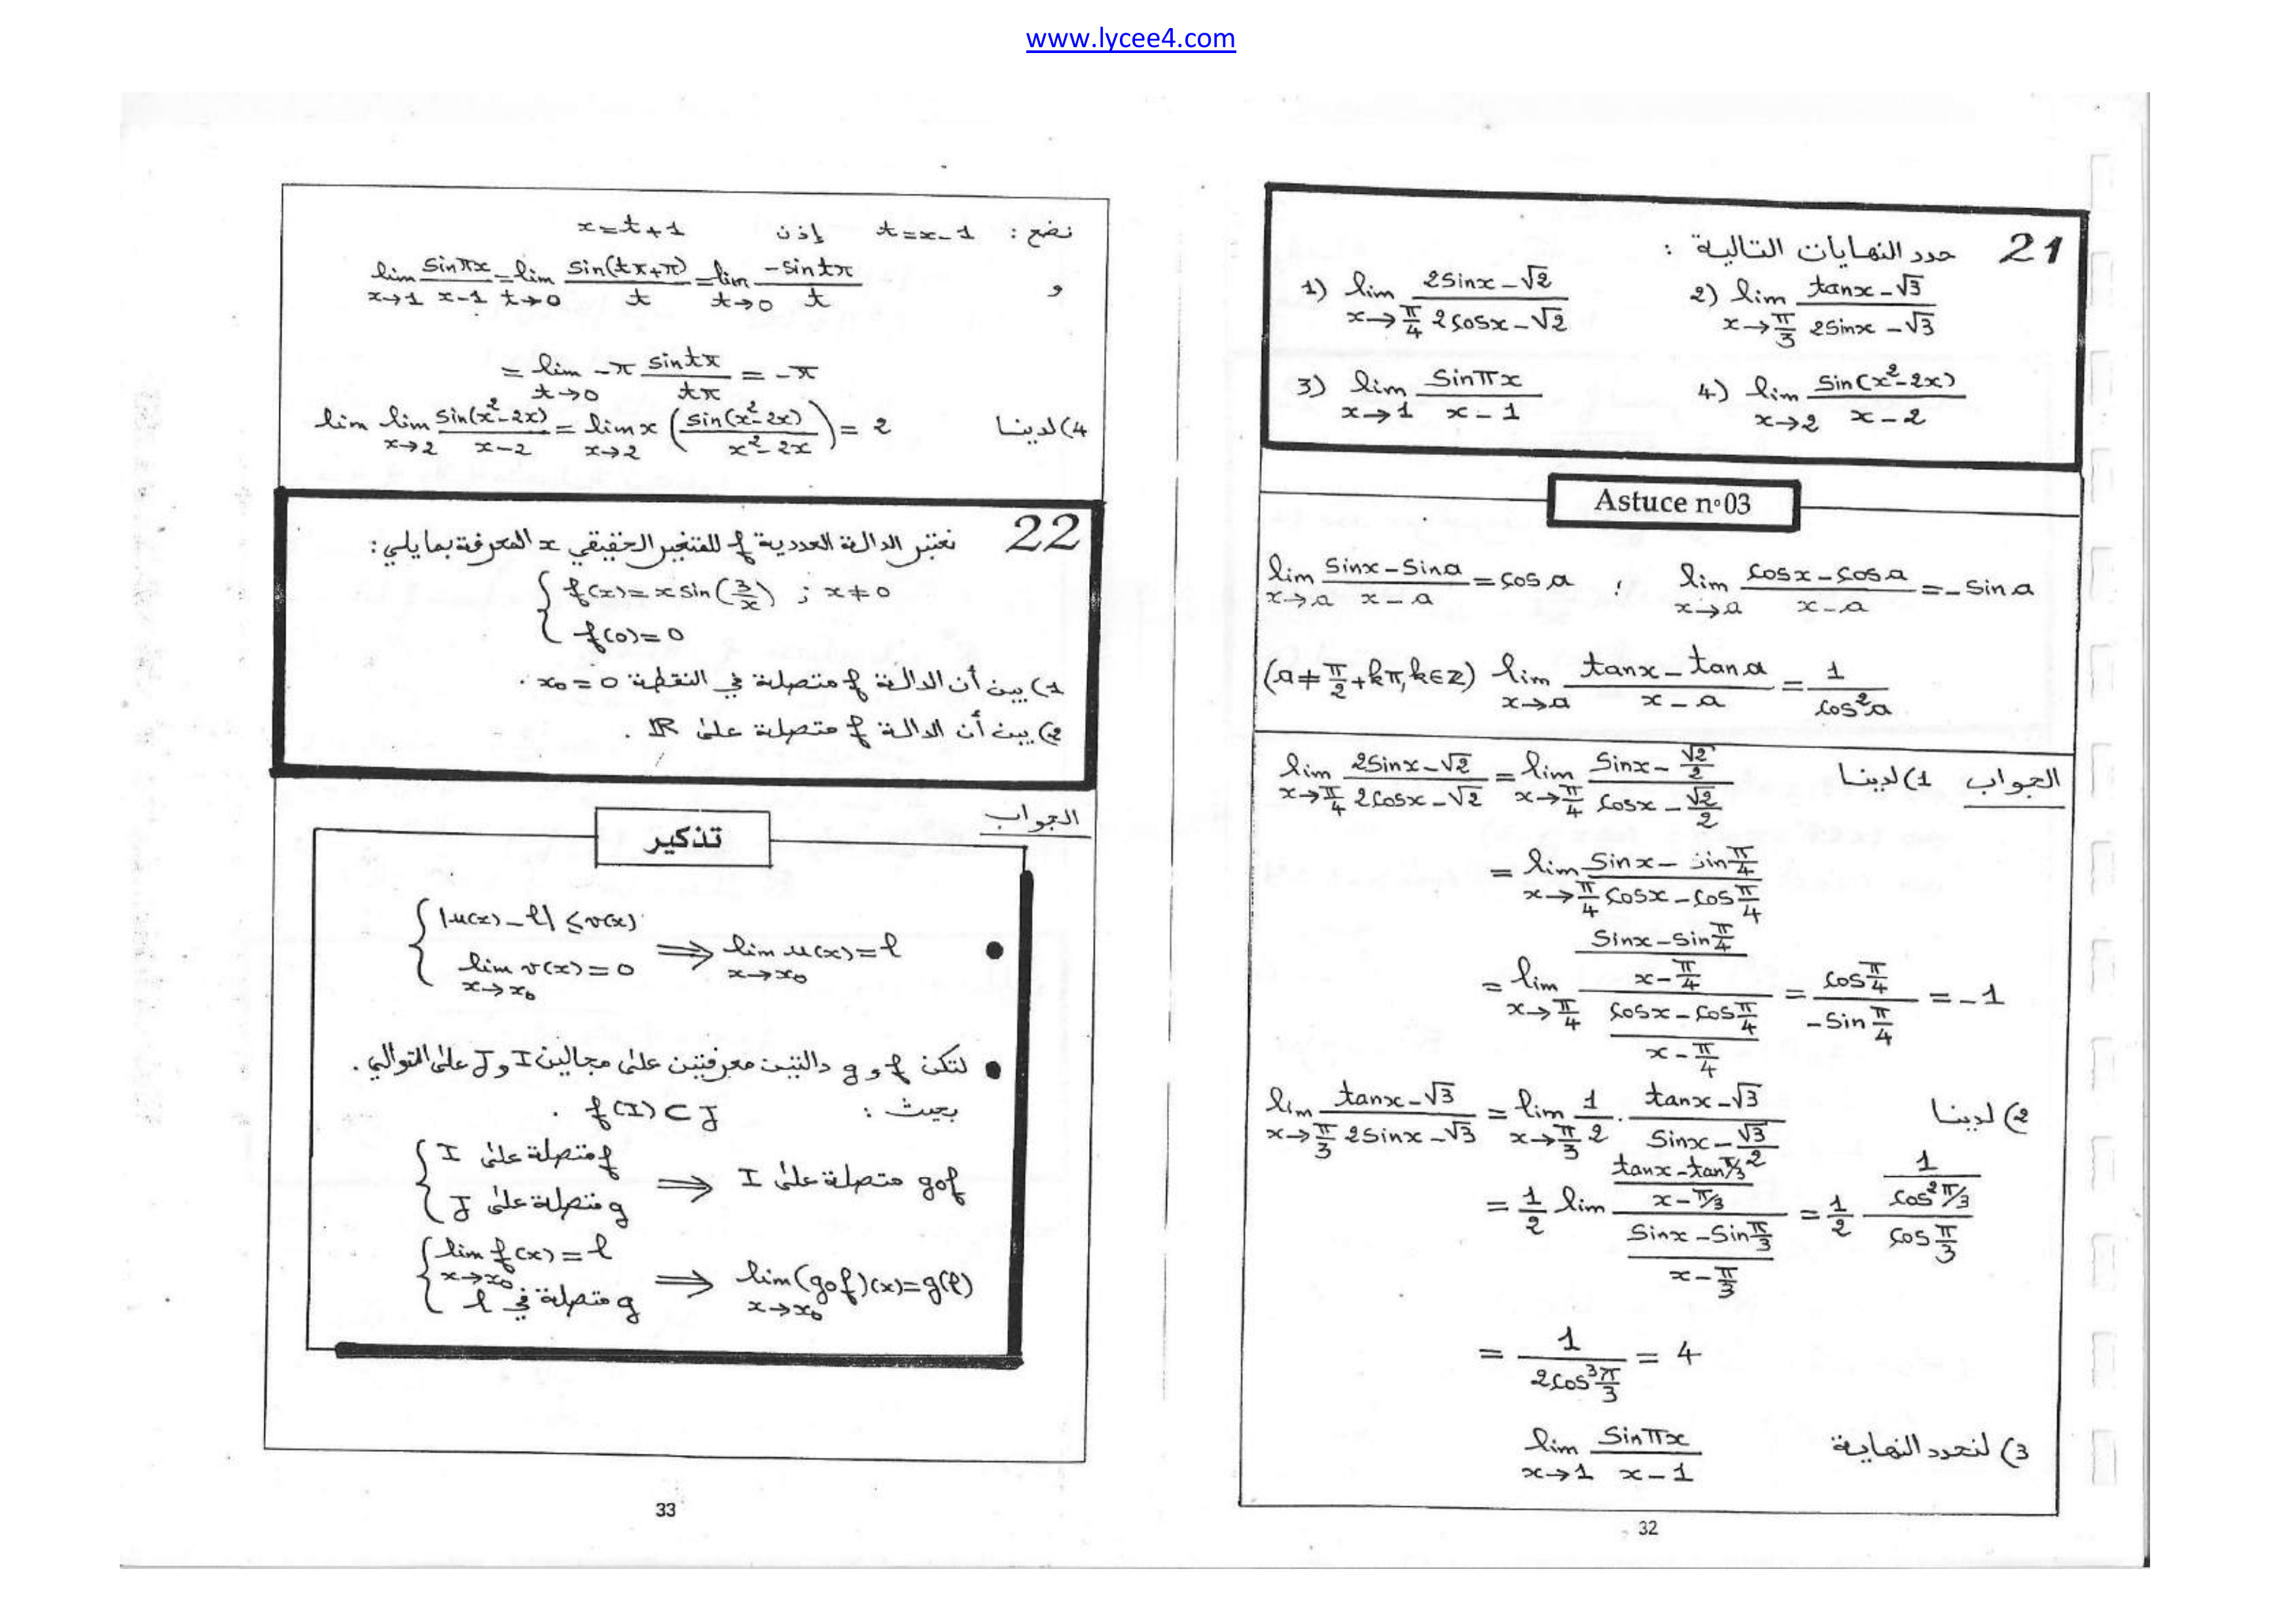 www.lycee4.com
21 حدد النهايات التالية :
1) lim_{x→π/4} (2sinx-√2)/(2cosx-√2) 2) lim_{x→π/3} (tanx-√3)/(2sinx-√3)
3) lim_{x→1} (sinπx)/(x-1) 4) lim_{x→2} (sin(x²-2x))/(x-2)
Astuce n°03
lim_{x→a} (sinx-sina)/(x-a) = cosa ; lim_{x→a} (cosx-cosa)/(x-a) = -sina
(a≠π/2+kπ, k∈Z) lim_{x→a} (tanx-tana)/(x-a) = 1/cos²a
الجواب 1) لدينا lim_{x→π/4} (2sinx-√2)/(2cosx-√2) = lim_{x→π/4} (sinx-√2/2)/(cosx-√2/2)
= lim_{x→π/4} (sinx-sinπ/4)/(cosx-cosπ/4)
= lim_{x→π/4} ((sinx-sinπ/4)/(x-π/4))/((cosx-cosπ/4)/(x-π/4)) = (cosπ/4)/(-sinπ/4) = -1
2) لدينا lim_{x→π/3} (tanx-√3)/(2sinx-√3) = lim_{x→π/3} 1/2 . (tanx-√3)/(sinx-√3/2)
= 1/2 lim ((tanx-tanπ/3)/(x-π/3))/((sinx-sinπ/3)/(x-π/3)) = 1/2 (1/cos²π/3)/(cosπ/3)
= 1/(2cos³π/3) = 4
3) لنحدد النهاية lim_{x→1} (sinπx)/(x-1)
32
نضع : t=x-1 إذن x=t+1
و lim_{x→1} (sinπx)/(x-1) = lim_{t→0} (sin(tπ+π))/t = lim_{t→0} (-sintπ)/t
= lim_{t→0} -π (sintπ)/(tπ) = -π
4) لدينا lim lim_{x→2} (sin(x²-2x))/(x-2) = lim_{x→2} x ((sin(x²-2x))/(x²-2x)) = 2
22 نعتبر الدالة العددية f للمتغير الحقيقي x المعرفة بما يلي:
{ f(x)=x sin(3/x) ; x≠0
f(0)=0
1) بين أن الدالة f متصلة في النقطة x₀=0 .
2) بين أن الدالة f متصلة على ℝ .
الجواب
تذكير
• { |u(x)-l| ≤ v(x)
lim_{x→x₀} v(x)=0 ⟹ lim_{x→x₀} u(x)=l
• لتكن f و g دالتين معرفتين على مجالين I و J على التوالي .
بحيث : f(I)⊂J .
{ f متصلة على I
g متصلة على J ⟹ gof متصلة على I
{ lim_{x→x₀} f(x)=l
g متصلة في l ⟹ lim_{x→x₀} (gof)(x)=g(l)
33